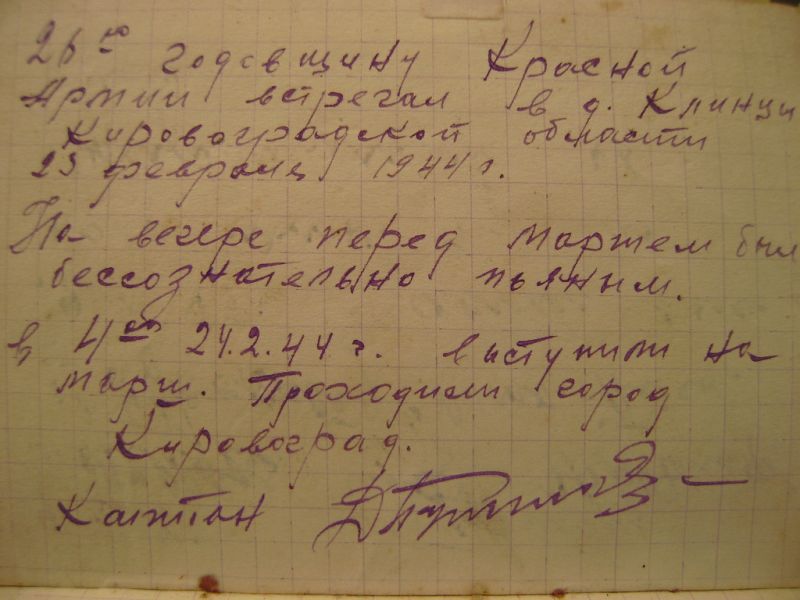 26ую годовщину Красной
Армии встречал в д. Клинцы
Кировоградской области
23 февраля 1944 г.
На вечере перед маршем был
бессознательно пьяным.
в 4оо 24.2.44 г. выступили на
марш. Проходили город
Кировоград.
Капитан